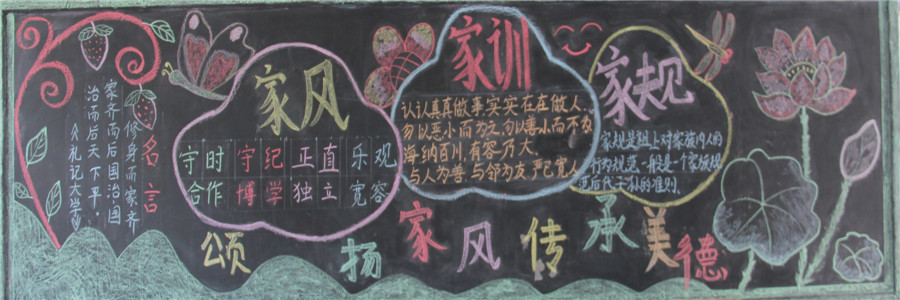 名言
修身而家齐
家齐而后国治国
治而后天下平。
《礼记大学》
家风
守时 守纪 正直 乐观
合作 博学 独立 宽容
家训
认认真真做事,实实在在做人、
勿以恶小而为之,勿以善小而不为
海纳百川,有容乃大、
与人为善,与邻为友,严己宽人
家规
家规是祖上对家族内人的
行为规范,一般是一个家族规
范后代子孙的准则.
颂扬家风传承美德